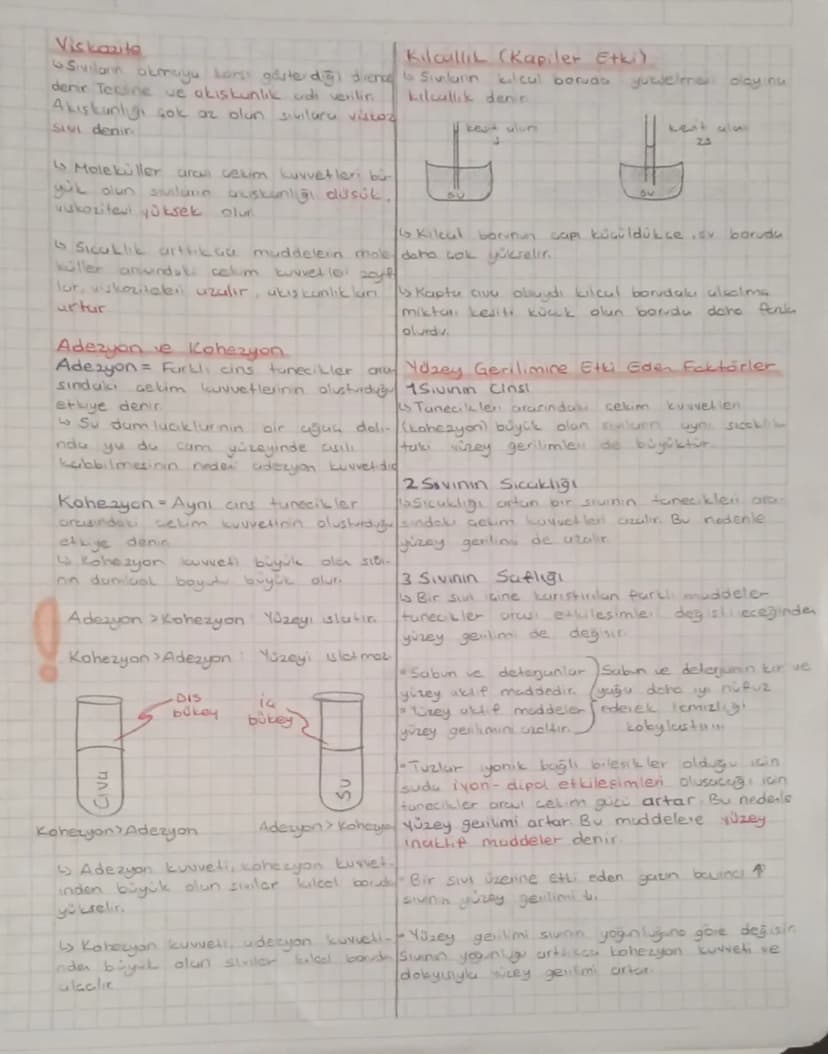 Viskozite
↳ Sıvıların akmaya karşı gösterdiği dirence
denir Tersine ve akışkanlık adı verilir.
Akışkanlığı çok az olan sıvılara viskoz
sıvı denir.
↳ Moleküller arası çekim kuvvetleri bü-
yük olan sıvıların akışkanlığı düşük,
viskozitesi yüksek olur.
↳ Sıcaklık arttıkça maddelerin mole
küller arasındaki çekim kuvvetleri zayıf
lar, viskoziteleri azalır, akışkanlıkları
artar
Adezyon ve Kohezyon
Adezyon = Farklı cins tanecikler ara
sındaki çekim kuvvetlerinin oluşturduğu
etkiye denir
↳ Su damlacıklarının bir ağaç dalı-
nda ya da cam yüzeyinde asılı
kalabilmesinin nedeni adezyon kuvvetidir
Kohezyon = Aynı cins tanecikler
arasındaki çekim kuvvetinin oluşturduğu
etkiye denir
↳ Kohezyon kuvveti büyük olan sıvı-
nın damlacık boyutu büyük olur.
! Adezyon > Kohezyon : Yüzeyi ıslatır.
Kohezyon > Adezyon : Yüzeyi ıslatmaz
DIŞ
bükey
iç
bükey
Civa
SU
Kohezyon > Adezyon
Adezyon > Kohezyo
↳ Adezyon kuvveti, kohezyon kuvvet-
inden büyük olan sıvılar kılcal boruda
yükselir.
↳ Kohezyon kuvveti, adezyon kuvveti-
nden büyük olan sıvılar kılcal boruda
alçalır
Kılcallık (Kapiler Etki)
↳ Sıvıların kılcal boruda yükselmesi olayına
kılcallık denir.
kesit alanı
s
kesit alanı
2s
su
su
↳ Kılcal borunun çapı küçüldükçe, sıvı boruda
daha çok yükselir.
↳ Kapta cıva olsaydı kılcal borudaki alçalma
miktarı kesiti küçük olan boruda daha fazla
olurdu.
Yüzey Gerilimine Etki Eden Faktörler
1 Sıvının Cinsi
↳ Tanecikleri arasındaki çekim kuvvetleri
(kohezyon) büyük olan sıvıların aynı sıcaklık
taki yüzey gerilimleri de büyüktür.
2 Sıvının Sıcaklığı
↳ Sıcaklığı artan bir sıvının tanecikleri ara-
sındaki çekim kuvvetleri azalır. Bu nedenle
yüzey gerilimi de azalır.
3 Sıvının Saflığı
↳ Bir sıvı içine karıştırılan farklı maddeler
tanecikler arası etkileşimleri değiştireceğinden
yüzey gerilimi de değişir.
• Sabun ve deterjanlar
yüzey aktif maddedir.
• Yüzey aktif maddeler
yüzey gerilimini azaltır.
Sabun ve deterjanın kir ve
yağa daha iyi nüfuz
ederek temizliği
kolaylaştırır.
• Tuzlar iyonik bağlı bileşikler olduğu için
suda iyon-dipol etkileşimleri oluşacağı için
tanecikler arası çekim gücü artar. Bu nedenle
yüzey gerilimi artar. Bu maddelere yüzey
inaktif maddeler denir.
• Bir sıvı üzerine etki eden gazın basıncı ↑
sıvının yüzey gerilimi ↓.
• Yüzey gerilimi sıvının yoğunluğuna göre değişir.
Sıvının yoğunluğu arttıkça kohezyon kuvveti ve
dolayısıyla yüzey gerilimi artar.